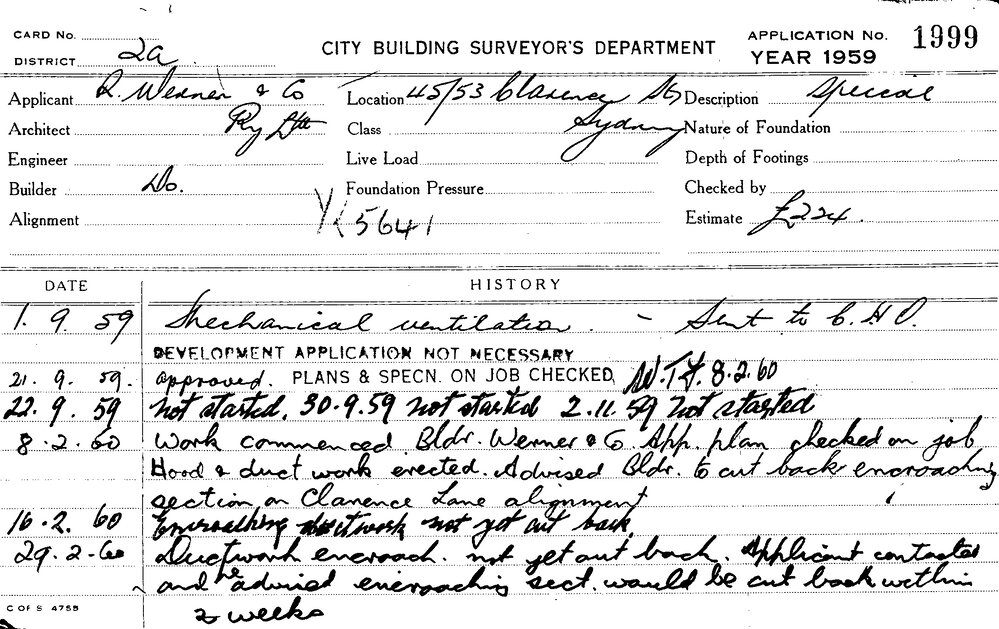 CARD No.
DISTRICT 2a
CITY BUILDING SURVEYOR'S DEPARTMENT
APPLICATION No. 1999
YEAR 1959
Applicant R. Werner & Co Location 45/53 Clarence St Description Special
Architect Pty Ltd Class Sydney Nature of Foundation
Engineer Live Load Depth of Footings
Builder Do. Foundation Pressure Checked by
Alignment 5641 Estimate £224.
DATE HISTORY
1. 9. 59 Mechanical ventilation. - Sent to C.H.O.
DEVELOPMENT APPLICATION NOT NECESSARY
21. 9. 59. approved. PLANS & SPECN. ON JOB CHECKED, W.T.F. 8.2.60
22. 9. 59 not started. 30.9.59 not started 2.11.59 not started
8. 2. 60 Work commenced. Bldr. Werner & Co. App. plan checked on job
Hood & duct work erected. Advised Bldr. to cut back encroaching
section on Clarence Lane alignment
16. 2. 60 Encroaching ductwork not yet cut back.
29. 2. 60 Ductwork encroach. not yet cut back. Applicant contacted
and he advised encroaching sect. would be cut back within
2 weeks
C OF S 4755